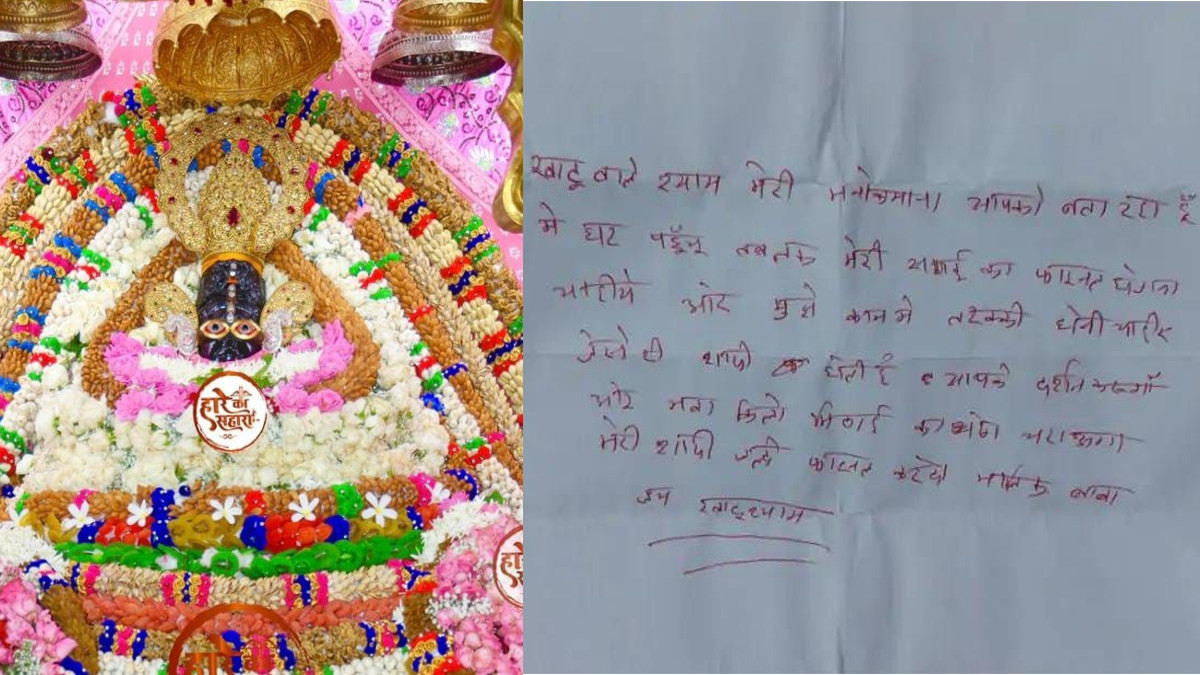 हारे का
सहारा
हारे
हारे का
खाटू वाले श्याम मेरी मनोकमाना आपको बता रहा हूँ
मे घर पहूँचू तबतक मेरी सगाई का फाइनल होना
चाहीये ओर मुझे काम मे तरक्की होनी चाहीए
जैसे ही शादी होती है आपके दर्शन करूगाँ
ओर सवा किलो मिठाई का भोग चढाऊगा
मेरी शादी जल्दी फाइनल करदो मालिक बाबा
जय खाटूश्याम